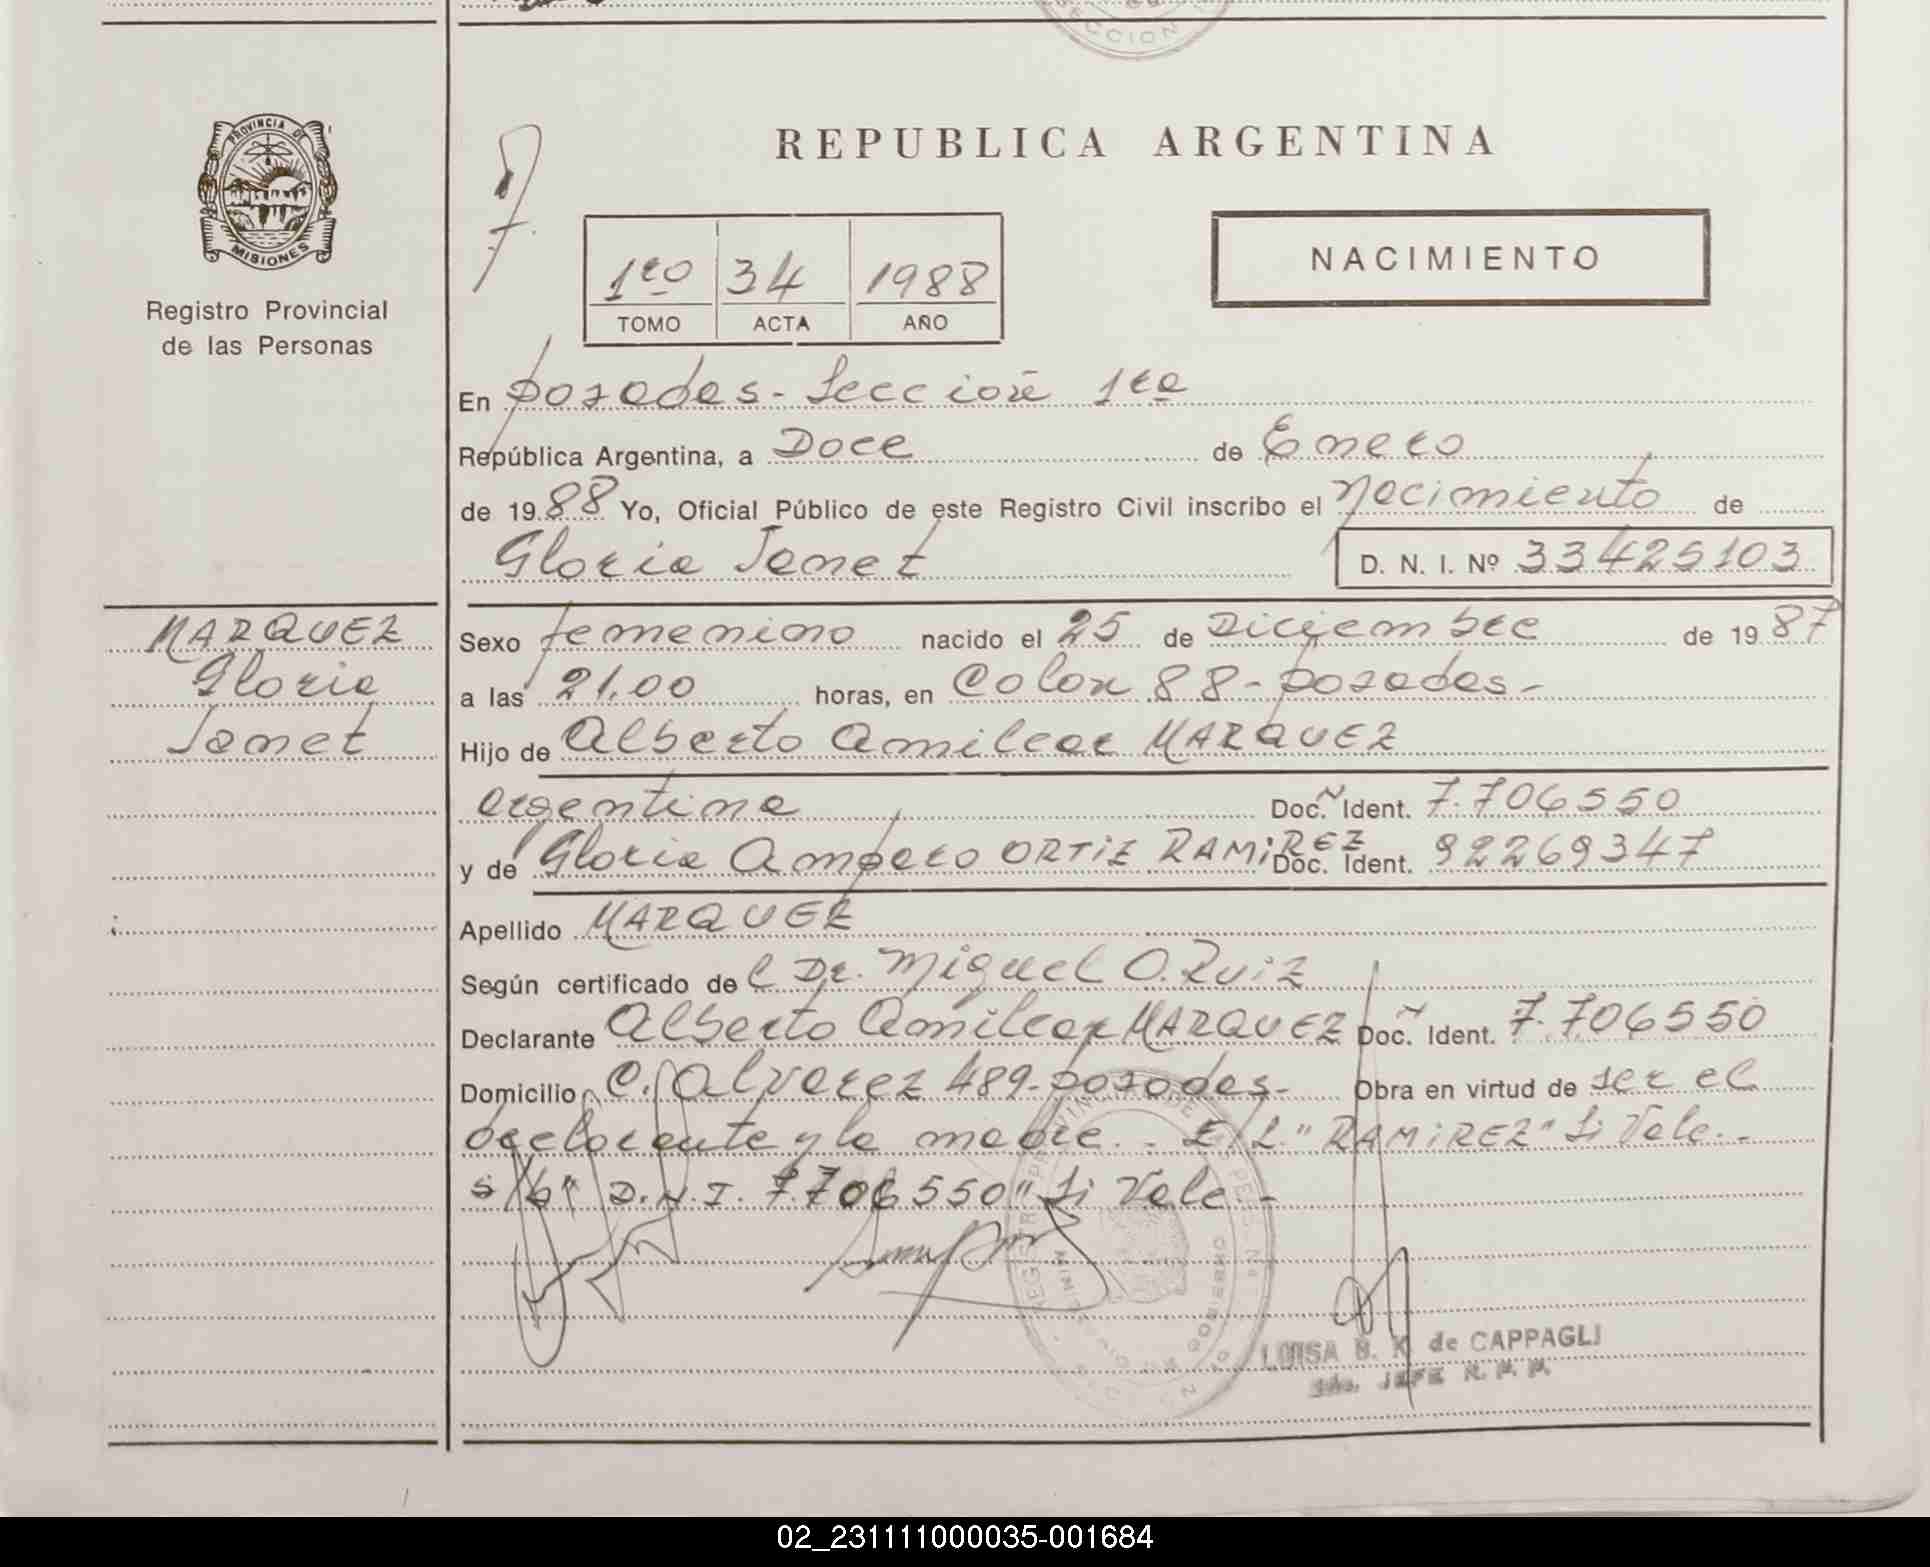 SECCION
PROVINCIA DE
MISIONES
Registro Provincial
de las Personas
REPUBLICA ARGENTINA
NACIMIENTO
1ro 34 1988
TOMO ACTA AÑO
En posadas - Sección 1ra
República Argentina, a Doce de Enero
de 1988 Yo, Oficial Público de este Registro Civil inscribo el nacimiento de
Gloria Janet D. N. I. Nº 33425103
MARQUEZ
Gloria
Janet
Sexo femenino nacido el 25 de Diciembre de 1987
a las 21.00 horas, en Colon 88 - posadas -
Hijo de Alberto Amilcar MARQUEZ
argentina Doc. Ident. 7.706550
y de Gloria Amparo ORTIZ RAMIREZ Doc. Ident. 92269347
Apellido MARQUEZ
Según certificado de l Dr. Miguel O. Ruiz
Declarante Alberto Amilcar MARQUEZ Doc. Ident. 7.706550
Domicilio C. Alvarez 489 - posadas - Obra en virtud de ser el
declarante y la madre. - E/L. "RAMIREZ" Si Vale. -
s/b" D.N.I. 7.706550" Si Vale -
LUISA B. K. de CAPPAGLI
JEFE R. P. P.
02_231111000035-001684